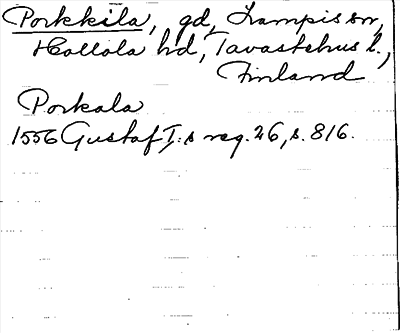 Porkkila, gd, Lampis sn,
Hollola hd, Tavastehus l.,
Finland
Porkala
1556 Gustaf I:s reg. 26, s. 816.